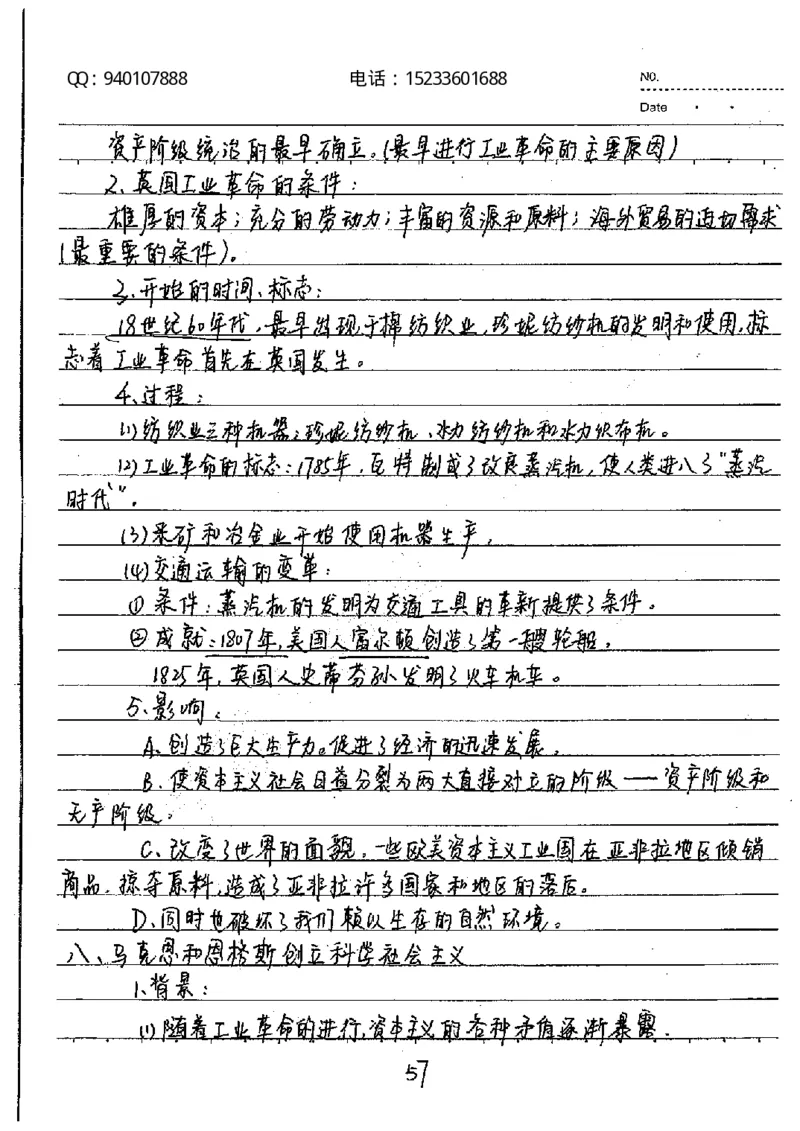 QQ：940107888 电话：15233601688 NO.
Date
资产阶级统治的最早确立。(最早进行工业革命的主要原因)
2、英国工业革命的条件：
雄厚的资本；充分的劳动力；丰富的资源和原料；海外贸易的迫切需求
(最重要的条件)。
3、开始的时间、标志：
18世纪60年代，最早出现于棉纺织业，珍妮纺纱机的发明和使用，标
志着工业革命首先在英国发生。
4、过程：
(1)纺织业三种机器：珍妮纺纱机、水力纺纱机和水力织布机。
(2)工业革命的标志：1785年，瓦特制成了改良蒸汽机，使人类进入了“蒸汽
时代”。
(3)采矿和冶金业开始使用机器生产。
(4)交通运输的变革：
①条件：蒸汽机的发明为交通工具的革新提供了条件。
②成就：1807年，美国人富尔顿创造了第一艘轮船。
1825年，英国人史蒂芬孙发明了火车机车。
5、影响：
A、创造了巨大生产力。促进了经济的迅速发展。
B、使资本主义社会日益分裂为两大直接对立的阶级——资产阶级和
无产阶级。
C、改变了世界的面貌，一些欧美资本主义工业国在亚非拉地区倾销
商品，掠夺原料，造成了亚非拉许多国家和地区的落后。
D、同时也破坏了我们赖以生存的自然环境。
八、马克思和恩格斯创立科学社会主义
1、背景：
(1)随着工业革命的进行，资本主义的各种矛盾逐渐暴露.
57